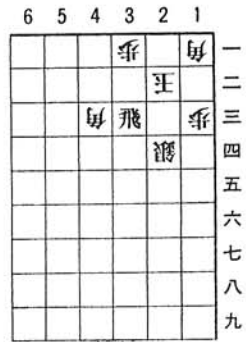 6 5 4 3 2 1
歩 角 一
玉 二
角 飛 歩 三
銀 四
五
六
七
八
九